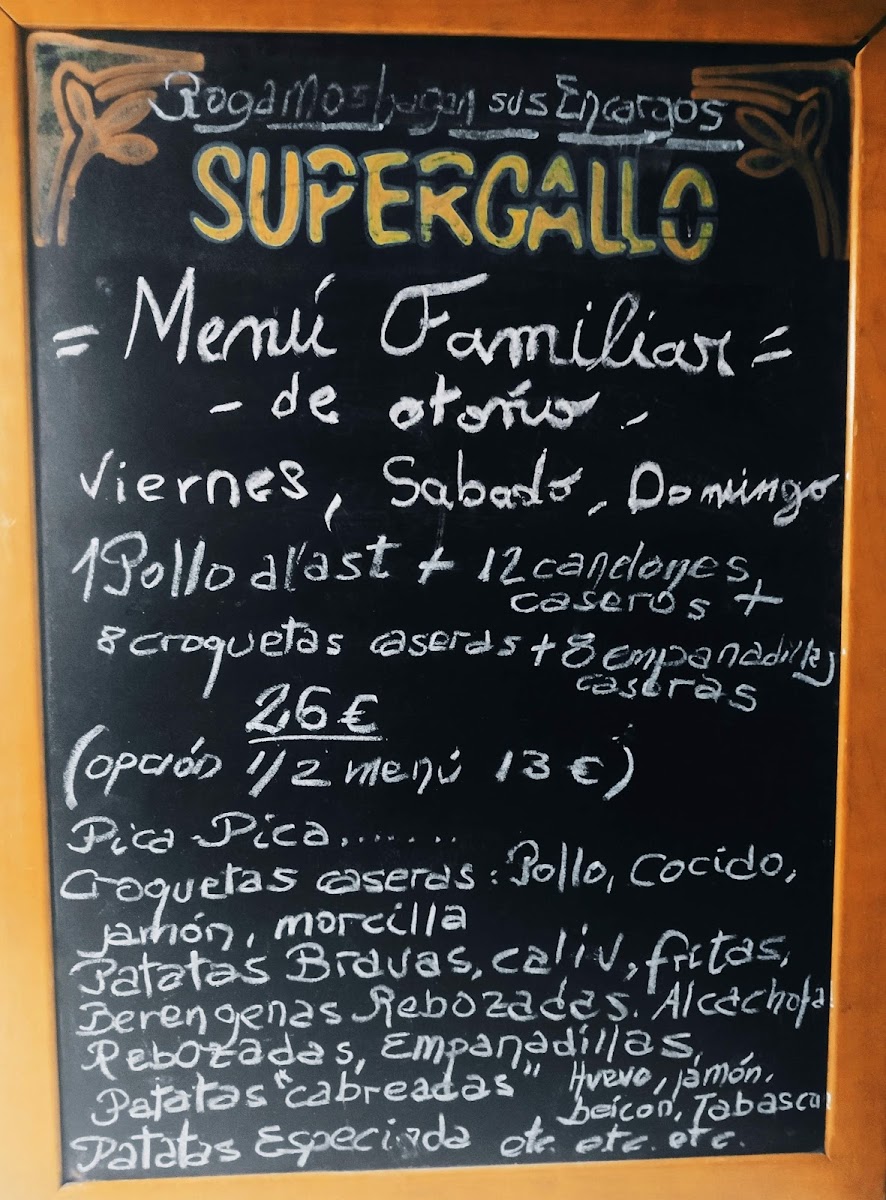 Rogamos hagan sus Encargos
SUPERGALLO
= Menú Familiar =
- de otoño -
Viernes, Sabado, Domingo
1 Pollo al'ast + 12 canelones
caseros +
8 croquetas caseras + 8 empanadillas
caseras
26 €
(opción 1/2 menú 13 €)
Pica-Pica........
Croquetas caseras: Pollo, Cocido,
jamón, morcilla
Patatas Bravas, caliv, fritas,
Berengenas Rebozadas. Alcachofa
Rebozadas, Empanadillas,
Patatas "cabreadas" Huevo, jamón,
beicon, Tabasco
Patatas Especiada etc. etc. etc.